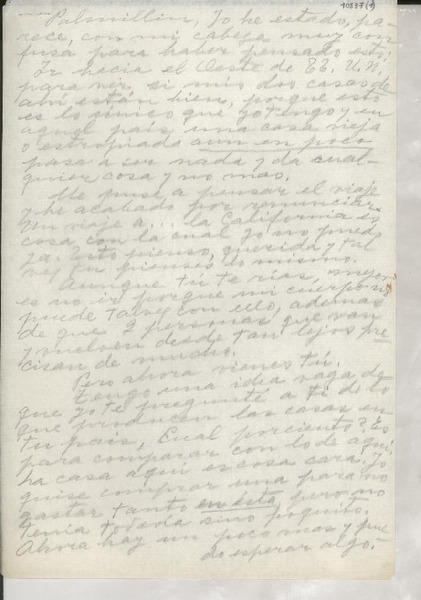 10837(1)
Palmillin, Yo he estado, pa-
rece, con mi cabeza muy con
fusa para haber pensado esto:
Ir hacia el Oeste de EE. U.U.
para ver si mis dos casas de
ahí están bien, porque esto
es lo único que yo tengo y en
aquel país una casa vieja
o estropiada aun en poco
pasa a ser nada y da cual-
quier cosa y no mas.
Me puse a pensar el viaje
y he acabado por renunciar.
Un viaje a... la California es
cosa con la cual yo no pued
Esto pienso, querida y tal
vez tu pienses lo mismo.
Aunque tú te rías, mejor
es no ir porque mi cuerpo no
puede talvez con ello, además
de que 2 personas que van
y vuelven desde tan lejos pre
cisan de mucho.
Pero ahora vienes tú.
Tengo una idea vaga de
que yo te pregunté a ti de lo
que producen las casas en
tu país, Cual porciento? Es
para comparar con lo de aquí.
La casa aquí es cosa cara. Yo
quise comprar una para no
gastar tanto en ésta, pero no
tenía todavía sino poquito.
Ahora hay un poco mas y pue
do esperar algo.-